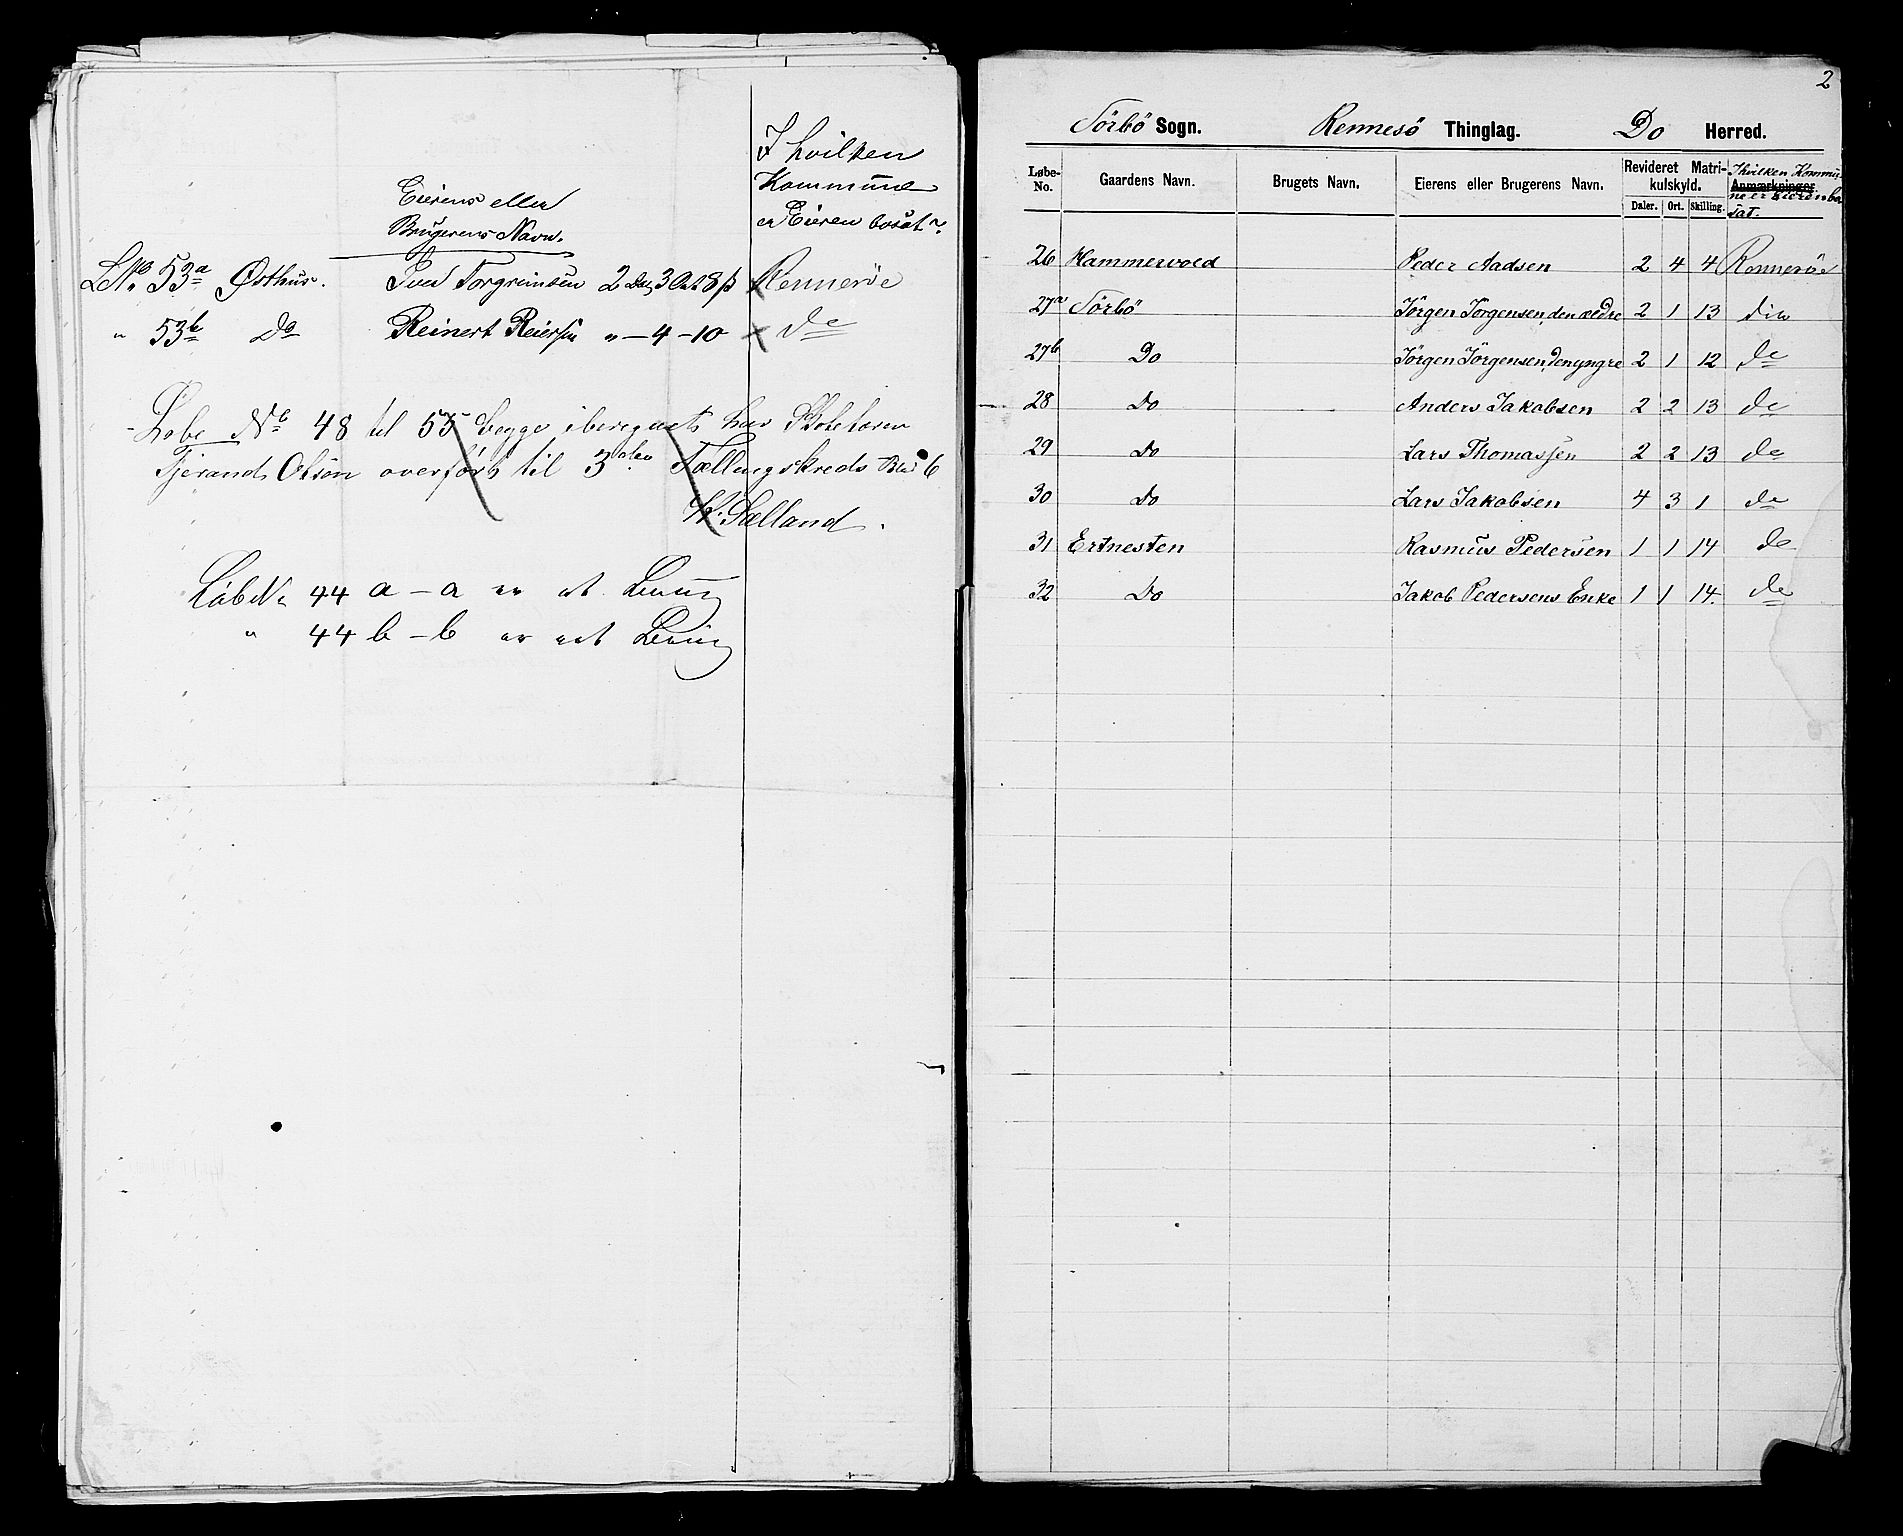 I hvilken
Kommune
er Eieren bosat?
Eierens eller
Brugerens Navn.
LNo 53a Østhus. Iver Torgrimsen 2 Dlr 3 Ort 8 ß Rennesöe
" 53b Do Reinert Reiersen " - 4 - 10 do
Löbe No 48 til 55 begge iberegnet har
Tjerand Olsön overfört til 3die Tællingskreds Blad 6
W. Sælland.
Löb No 44 a - a er et Brug
" 44 b - b er et Brug
2
Sörbö Sogn. Rennesö Thinglag. Do Herred.
Løbe-No. Gaardens Navn. Brugets Navn. Eierens eller Brugerens Navn. Revideret Matrikulskyld. Daler. Ort. Skilling. Anmærkninger. I hvilken Kommune er Eieren bosat.
26 Hammervold Peder Aadsen 2 4 4 Rennesöe
27a Sörbö Jörgen Jörgensen, den ældre 2 1 13 dito
27b Do Jörgen Jörgensen, den yngre 2 1 12 do
28 Do Anders Jakobsen 2 2 13 do
29 Do Lars Thomassen 2 2 13 do
30 Do Lars Jakobsen 4 3 1 do
31 Ertnesten Rasmus Pedersen 1 1 14 do
32 Do Jakob Pedersens Enke 1 1 14. do